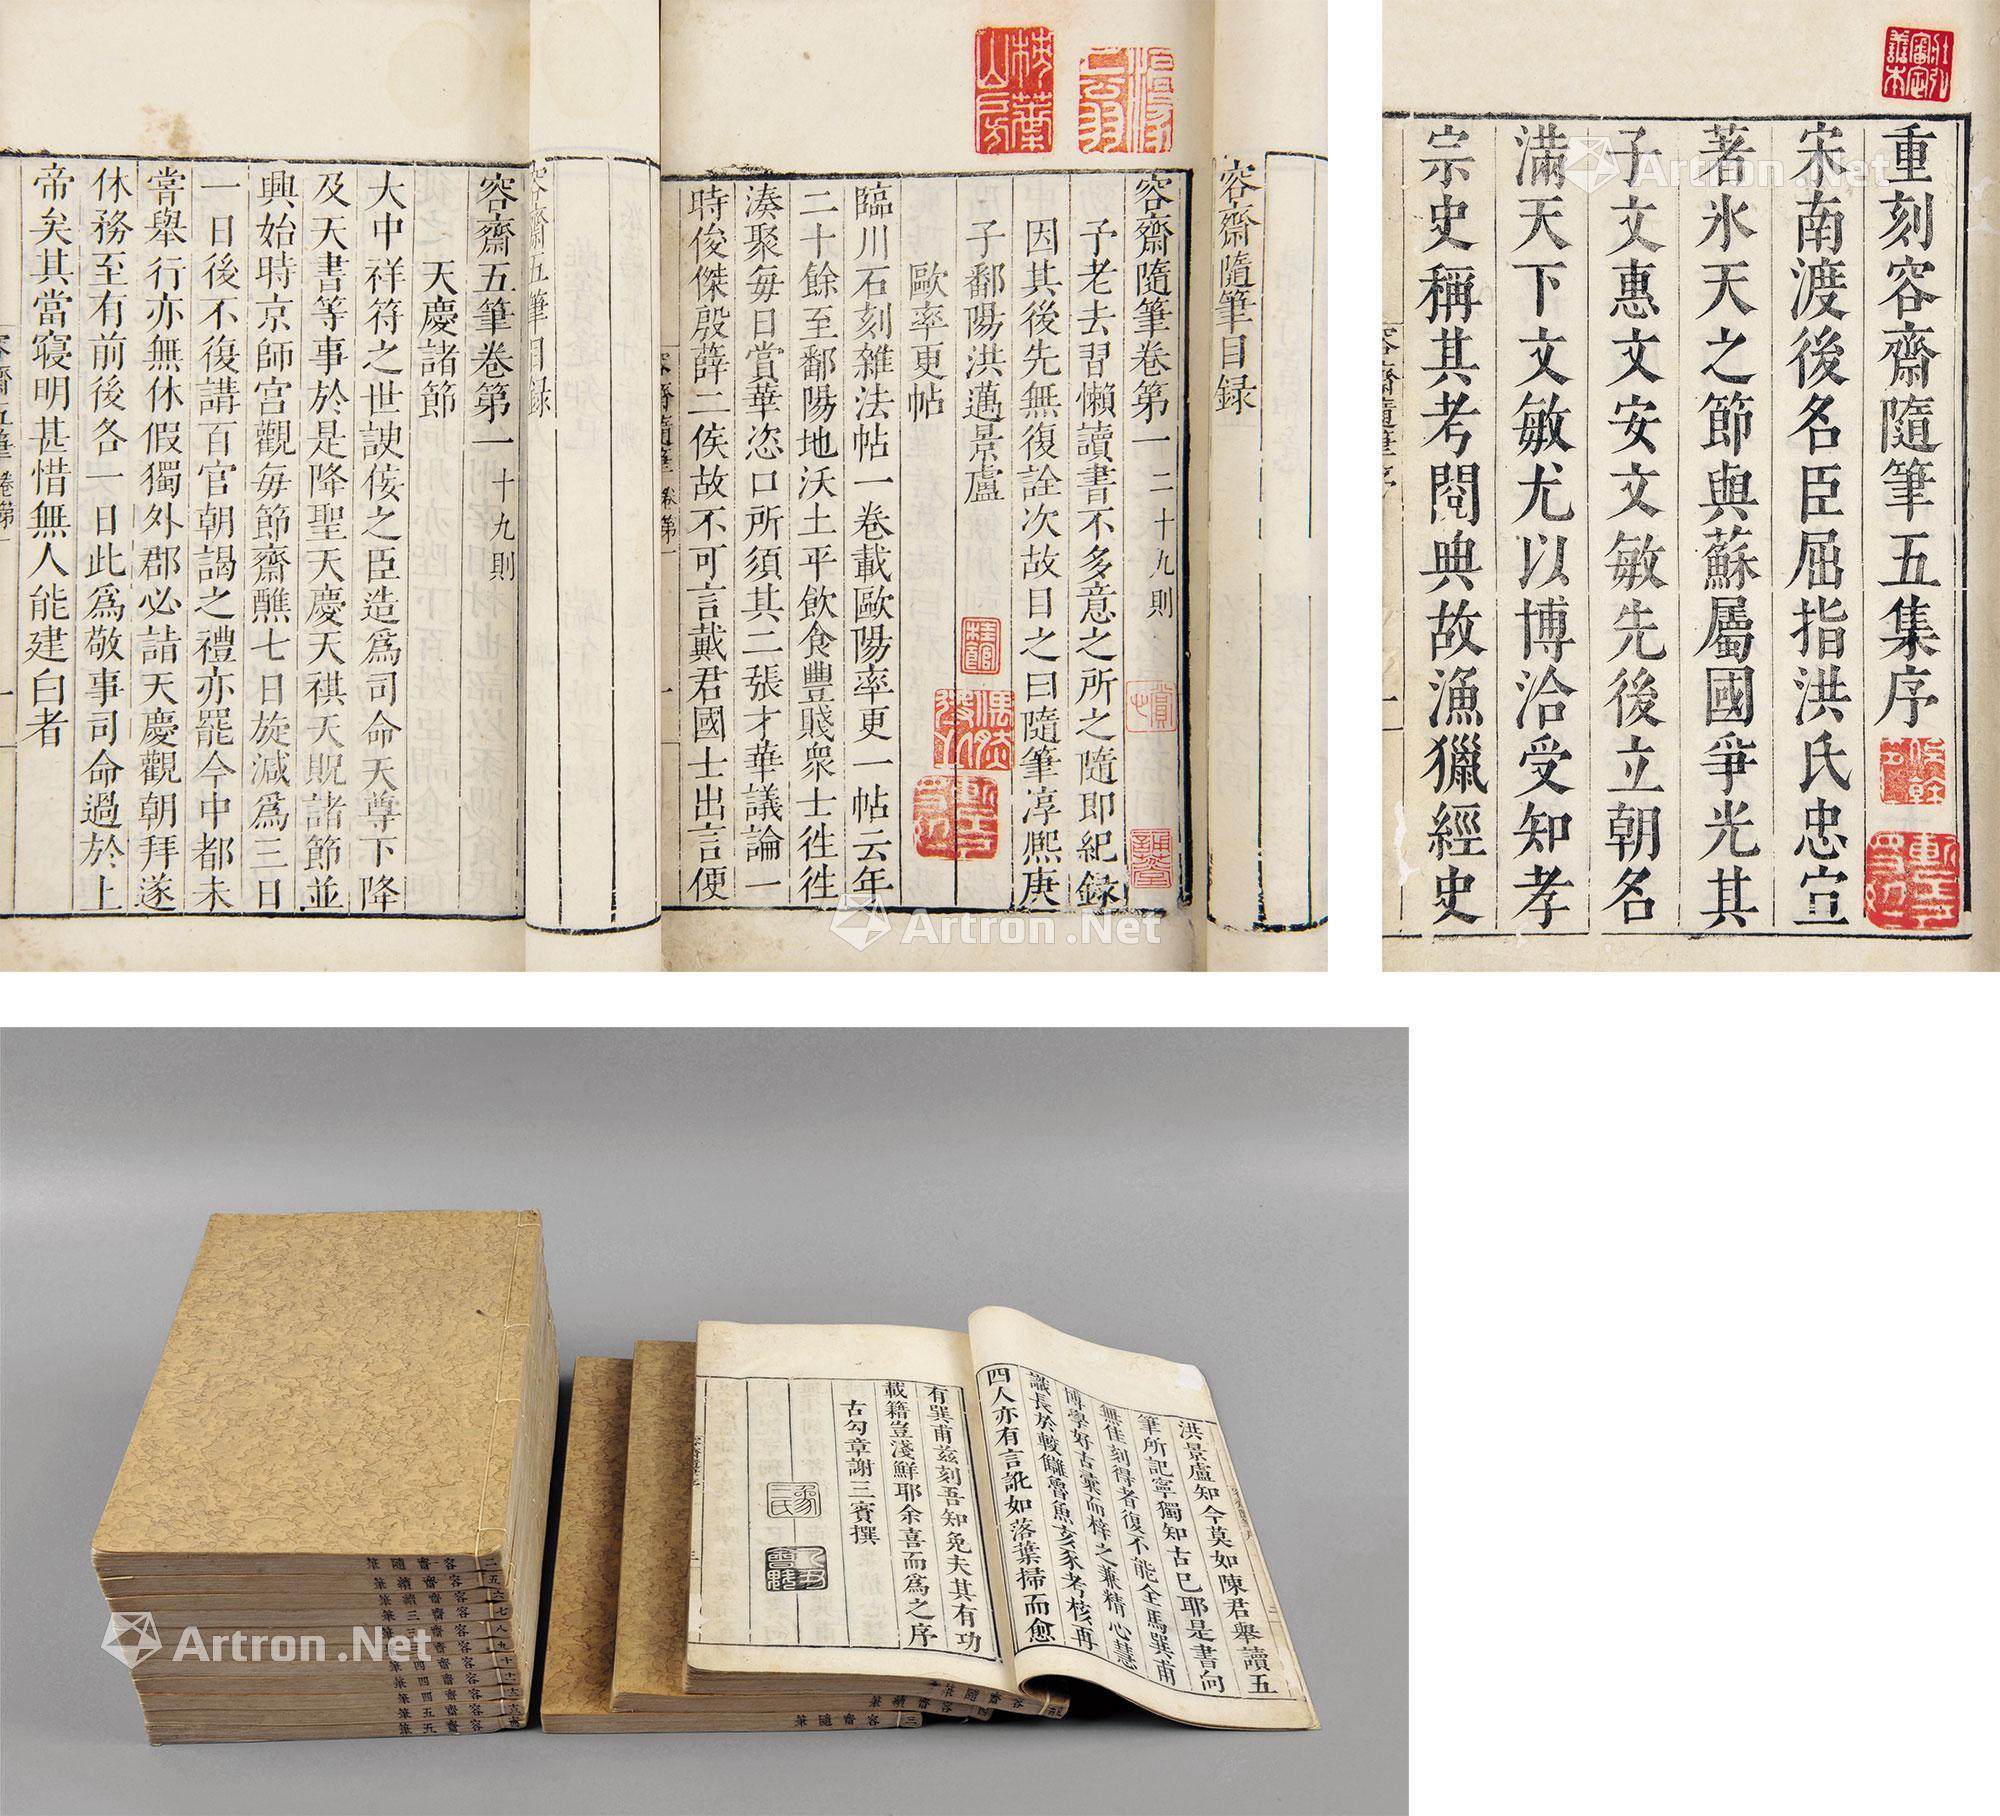 重刻容齋隨筆五集序
宋南渡後名臣屈指洪氏忠宣
著氷天之節與蘇屬國爭光其
子文惠文安文敏先後立朝名
滿天下文敏尤以博洽受知孝
宗史稱其考閱典故漁獵經史
容齋隨筆目録
容齋隨筆卷第一 二十九則
予老去習懶讀書不多意之所之隨即紀録
因其後先無復詮次故目之曰隨筆淳熈庚
子鄱陽洪邁景盧
歐率更帖
臨川石刻雜法帖一卷載歐陽率更一帖云年
二十餘至鄱陽地沃土平飲食豐賤衆士徃徃
湊聚每日賞華恣口所須其二張才華議論一
時俊傑殷薛二侯故不可言戴君國士出言便
容齋隨筆 卷第一 一
容齋五筆目録
容齋五筆卷第一 十九則
天慶諸節
大中祥符之世諛佞之臣造爲司命天尊下降
及天書等事於是降聖天慶天祺天貺諸節並
興始時京師宮觀每節齋醮七日旋減爲三日
一日後不復講百官朝謁之禮亦罷今中都未
嘗舉行亦無休假獨外郡必詣天慶觀朝拜遂
休務至有前後各一日此爲敬事司命過於上
帝矣其當寢明甚惜無人能建白者
容齋五筆 卷第一 一
洪景盧知今莫如陳君舉讀五
筆所記寧獨知古已耶是書向
無佳刻得者復不能全馬巽甫
博學好古彙而梓之兼精心慧
識長於較讎魯魚亥豕考核再
四人亦有言訛如落葉掃而愈
有巽甫兹刻吾知免夫其有功
載籍豈淺鮮耶余喜而爲之序
古勾章謝三賓撰
槐葉山房
Artron.Net
Artron.Net
Artron.Net